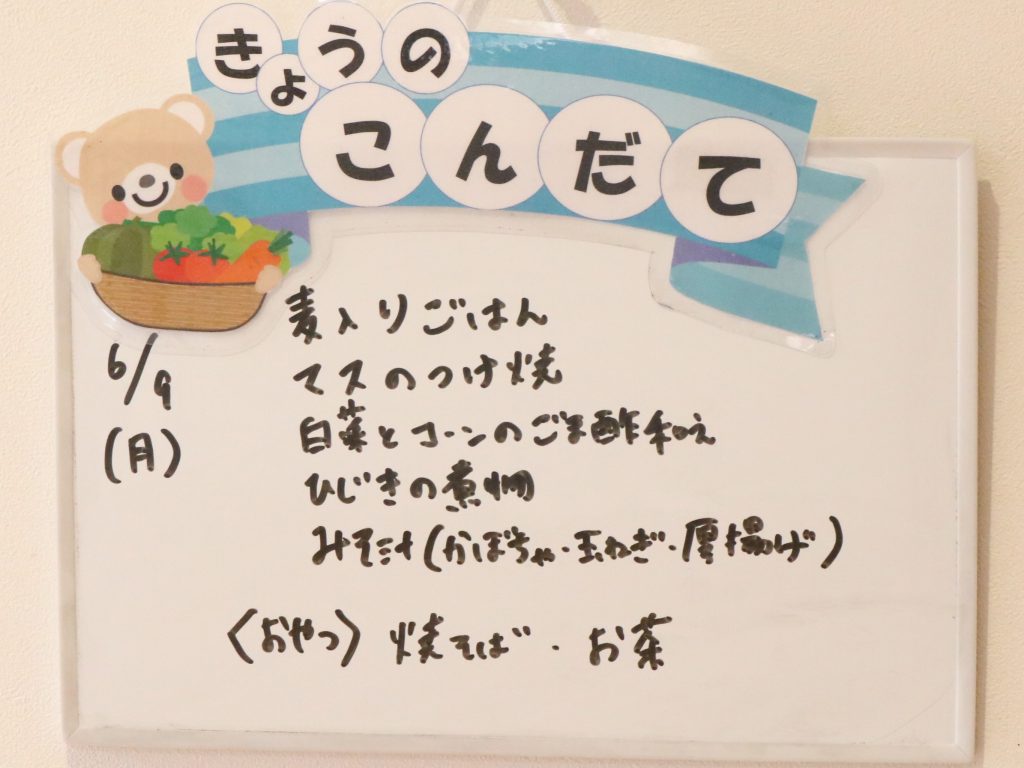 きょうの
こんだて
6/9
(月)
麦入りごはん
マスのつけ焼
白菜とコーンのごま酢和え
ひじきの煮物
みそ汁(かぼちゃ・玉ねぎ・厚揚げ)
〈おやつ〉 焼そば・お茶